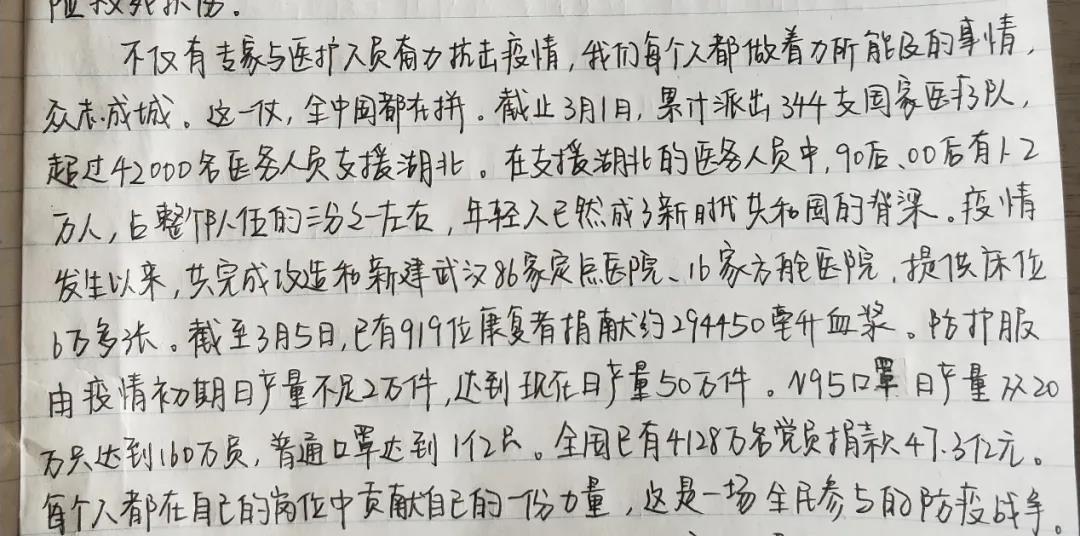 不仅有专家与医护人员奋力抗击疫情，我们每个人都做着力所能及的事情，
众志成城。这一仗，全中国都在拼。截止3月1日，累计派出344支国家医疗队，
超过42000名医务人员支援湖北。在支援湖北的医务人员中，90后、00后有1.2
万人，占整个队伍的三分之一左右，年轻人已然成了新时代共和国的脊梁。疫情
发生以来，共完成改造和新建武汉86家定点医院、16家方舱医院，提供床位
6万多张。截至3月5日，已有919位康复者捐献约294450毫升血浆。防护服
由疫情初期日产量不足2万件，达到现在日产量50万件。N95口罩日产量从20
万只达到160万只，普通口罩达到1亿只。全国已有4128万名党员捐款47.3亿元。
每个人都在自己的岗位中贡献自己的一份力量，这是一场全民参与的防疫战争。